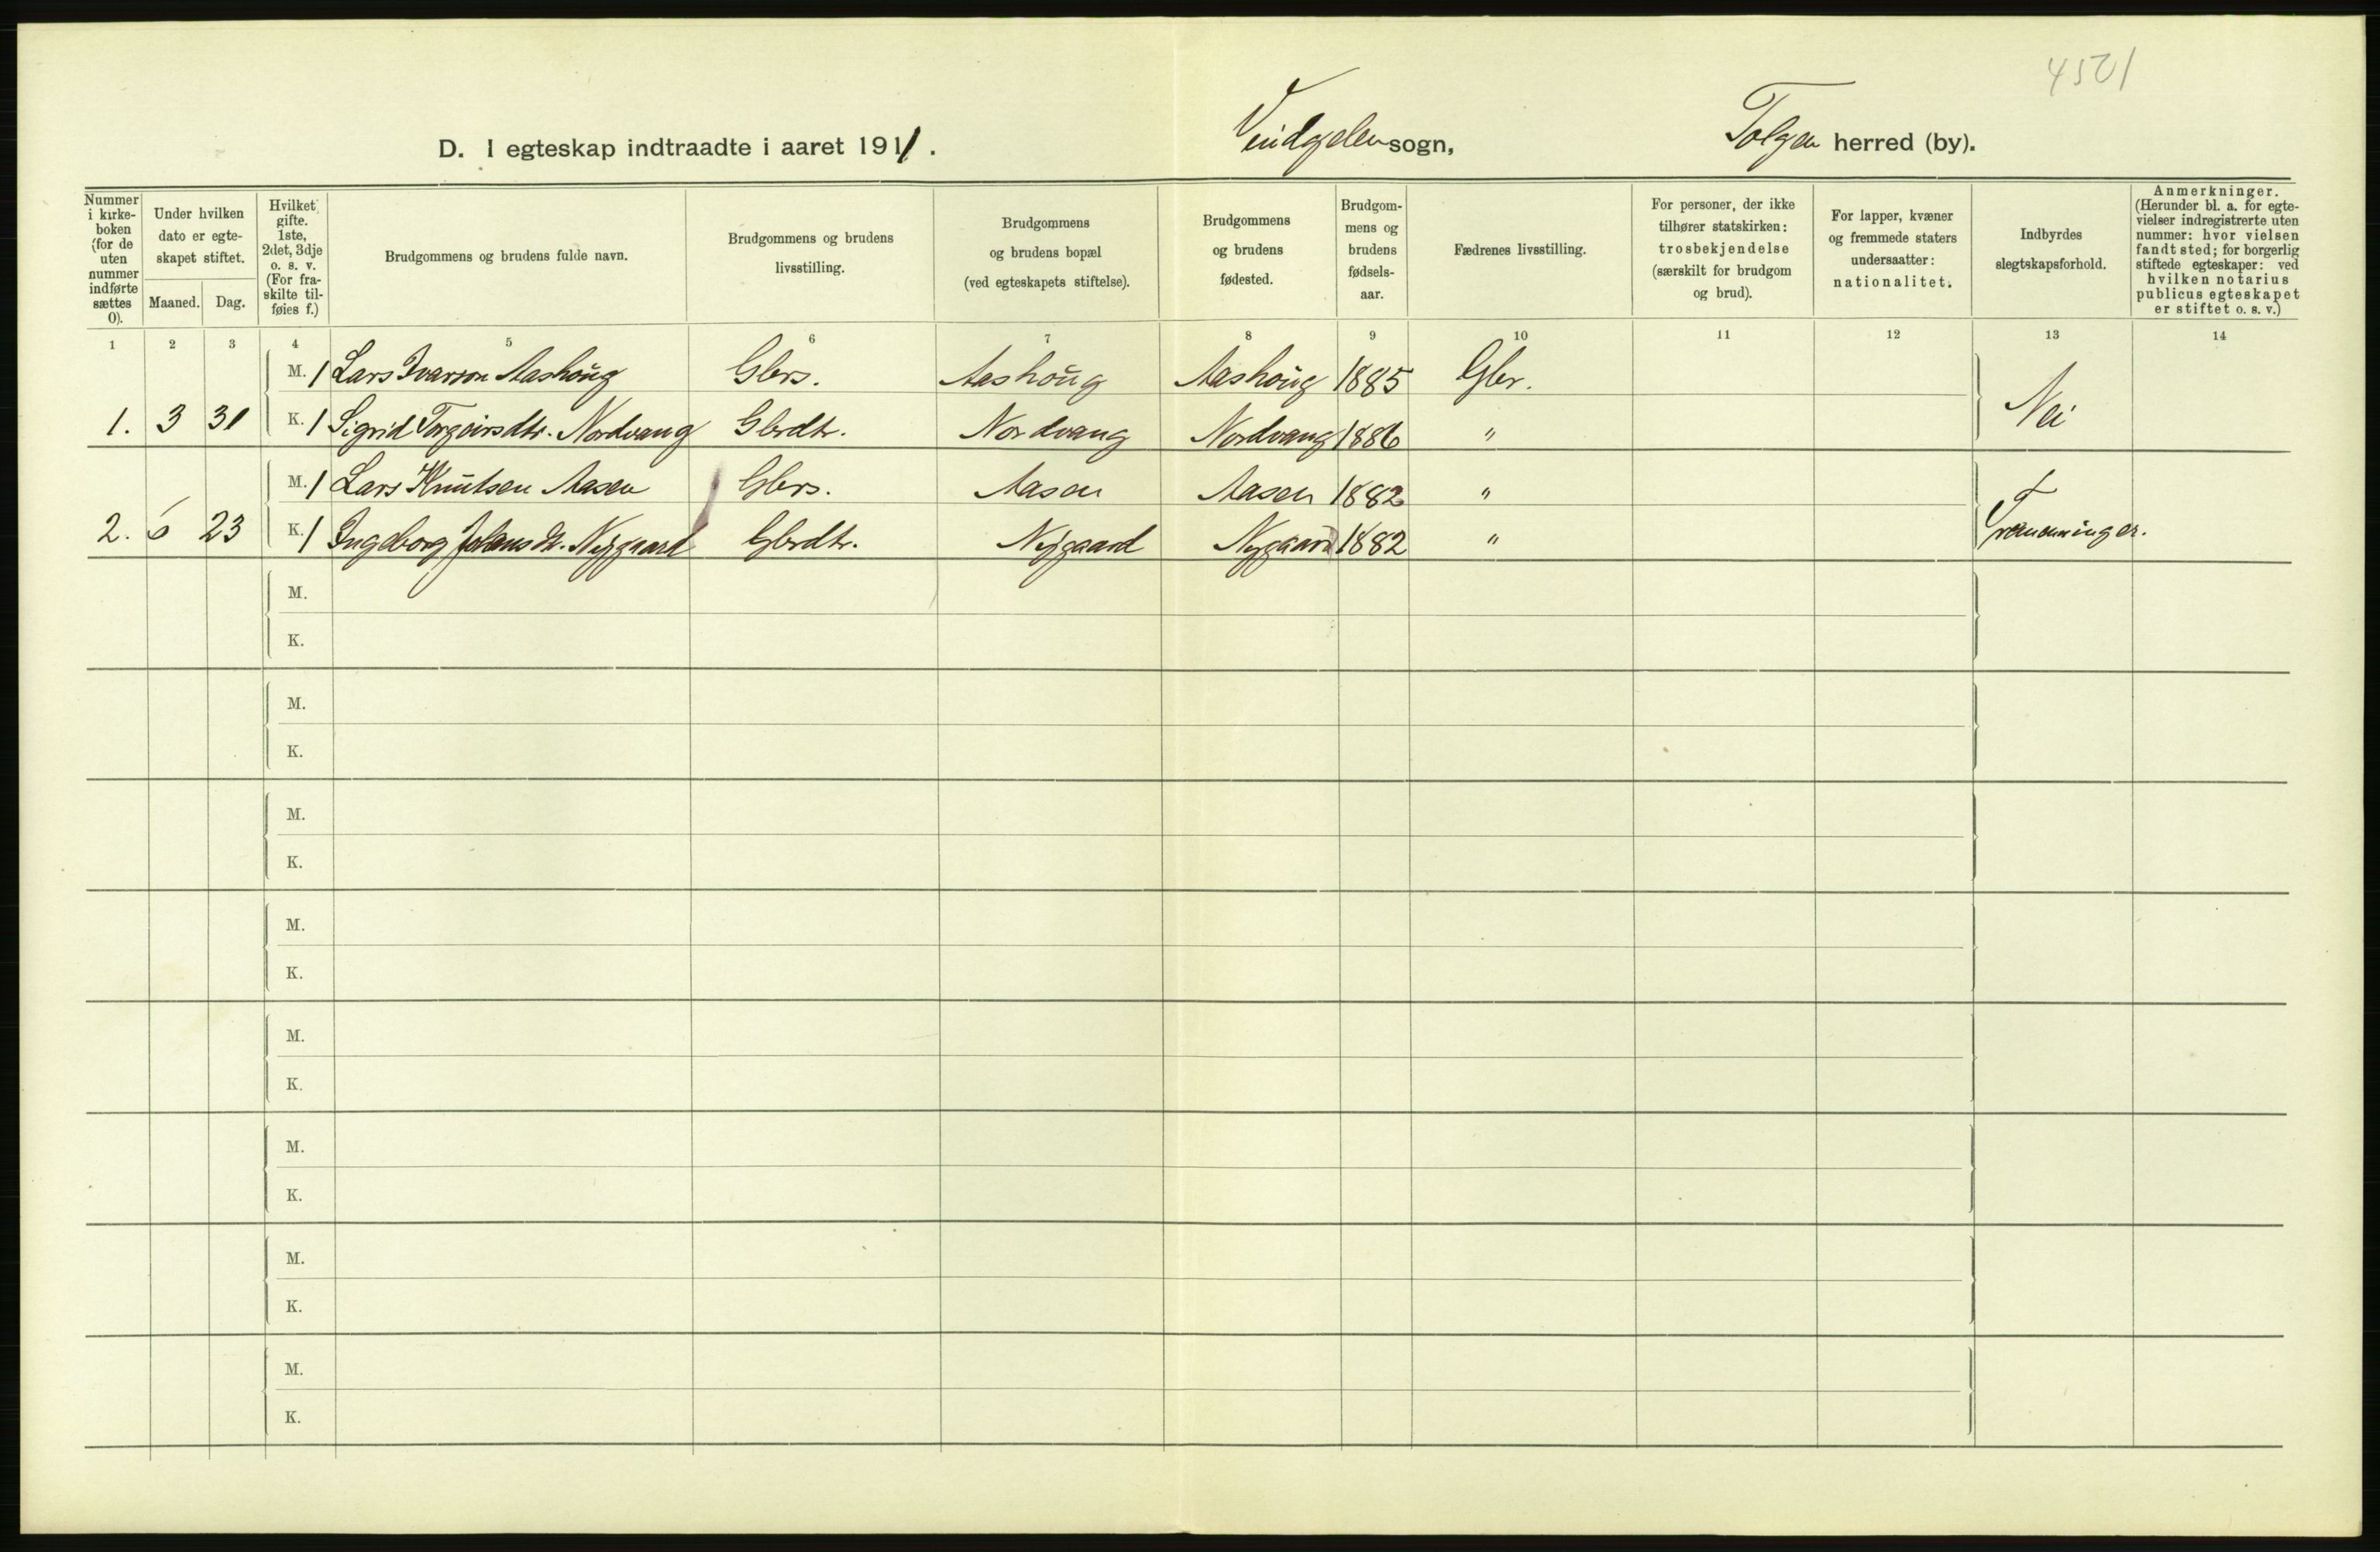 4501
D. I egteskap indtraadte i aaret 1911. Vindgelen sogn, Tolgen herred (by).
Nummer i kirkeboken (for de uten nummer indførte sættes 0).
Under hvilken dato er egteskapet stiftet.
Maaned. Dag.
Hvilket gifte. 1ste, 2det, 3dje o. s. v. (For fraskilte tilføies f.)
Brudgommens og brudens fulde navn.
Brudgommens og brudens livsstilling.
Brudgommens og brudens bopæl (ved egteskapets stiftelse).
Brudgommens og brudens fødested.
Brudgommens og brudens fødselsaar.
Fædrenes livsstilling.
For personer, der ikke tilhører statskirken: trosbekjendelse (særskilt for brudgom og brud).
For lapper, kvæner og fremmede staters undersaatter: nationalitet.
Indbyrdes slegtskapsforhold.
Anmerkninger. (Herunder bl. a. for egtevielser indregistrerte uten nummer: hvor vielsen fandt sted; for borgerlig stiftede egteskaper: ved hvilken notarius publicus egteskapet er stiftet o. s. v.)
1 2 3 4 5 6 7 8 9 10 11 12 13 14
M. 1 Lars Ivarson Aashoug Gbrs. Aashoug Aashoug 1885 Gbr.
1. 3 31 K. 1 Sigrid Torgeirsdtr. Nordvang Gbrdtr. Nordvang Nordvang 1886 " Nei
M. 1 Lars Knutsen Aasen Gbrs. Aasen Aasen 1882 "
2. 6 23 K. 1 Ingeborg Johans dt. Nygaard Gbrdtr. Nygaard Nygaard 1882 " Tremenninger.
M.
K.
M.
K.
M.
K.
M.
K.
M.
K.
M.
K.
M.
K.
M.
K.